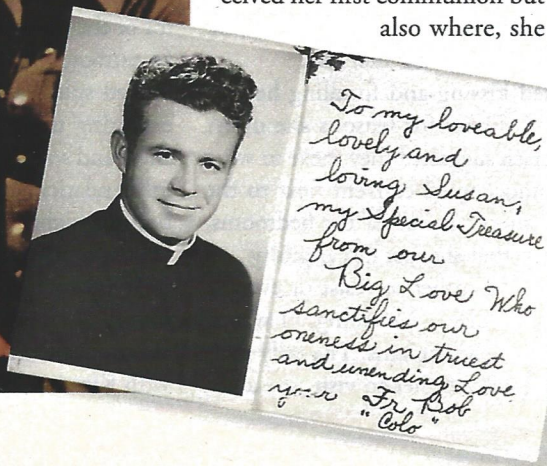 ceived her first communion but
also where, she
To my loveable,
lovely and
loving Susan,
my Special Treasure
from our
Big Love Who
sanctifies our
oneness in truest
and unending Love
your Fr. Bob
"Colo"